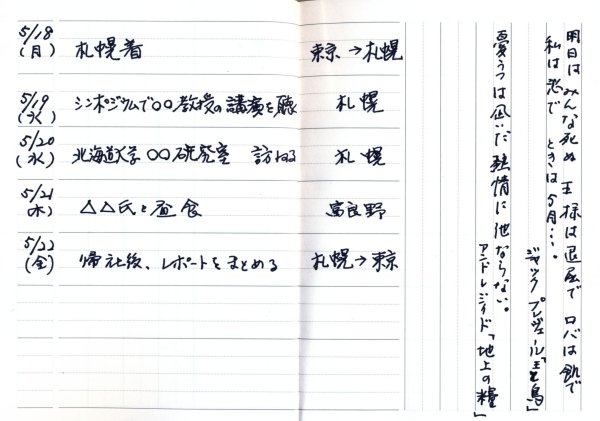 5/18 (月) 札幌着 東京→札幌
5/19 (火) シンポジウムで〇〇教授の講演を聴く 札幌
5/20 (水) 北海道大学〇〇研究室 訪ねる 札幌
5/21 (木) △△氏と昼食 富良野
5/22 (金) 帰社後、レポートをまとめる 札幌→東京
明日はみんな死ぬ 王様は退屈で ロバは飢で
私は恋で ときは5月・・・。
ジャック プレヴェール「王と鳥」
憂うつは凪いだ熱情に他ならない。
アンドレ・ジイド「地上の糧」